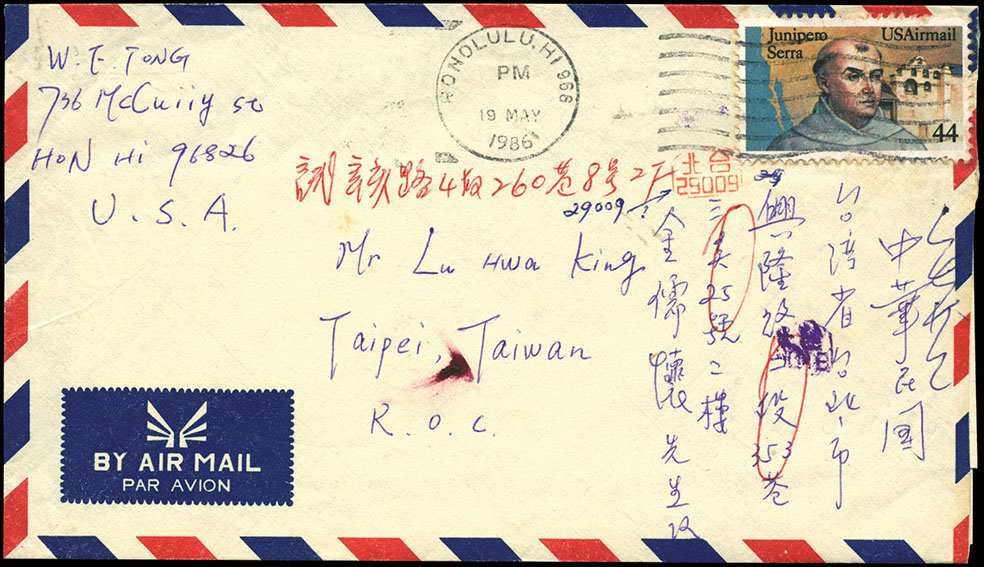 W. T. TONG
736 McCully St
HON HI 96826
U. S. A.
HONOLULU, HI 968
PM
19 MAY
1986
Junipero
Serra
USAirmail
44
路4段260巷8号2F
北台
29009
29009
Mr Lu Hwa King
Taipei, Taiwan
R. O. C.
中華民國
台湾省台北市
興隆路段353巷
25號二樓
金儒懷先生收
BY AIR MAIL
PAR AVION